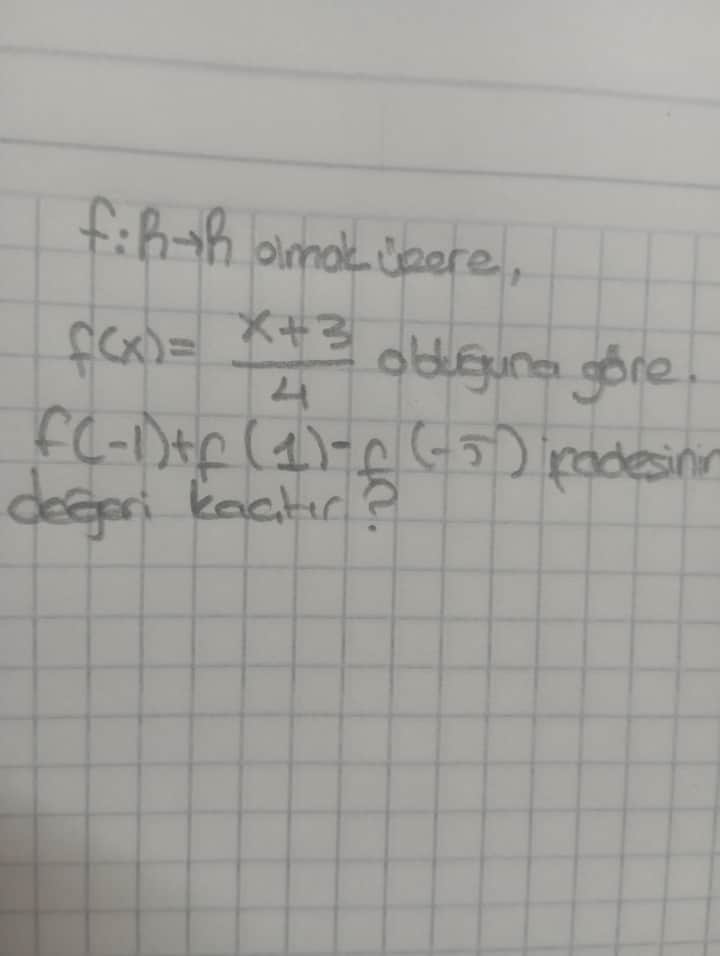 f:R→R olmak üzere,
f(x)= x+3/4 olduğuna göre.
f(-1)+f(1)-f(-5) ifadesinin
değeri kaçtır?